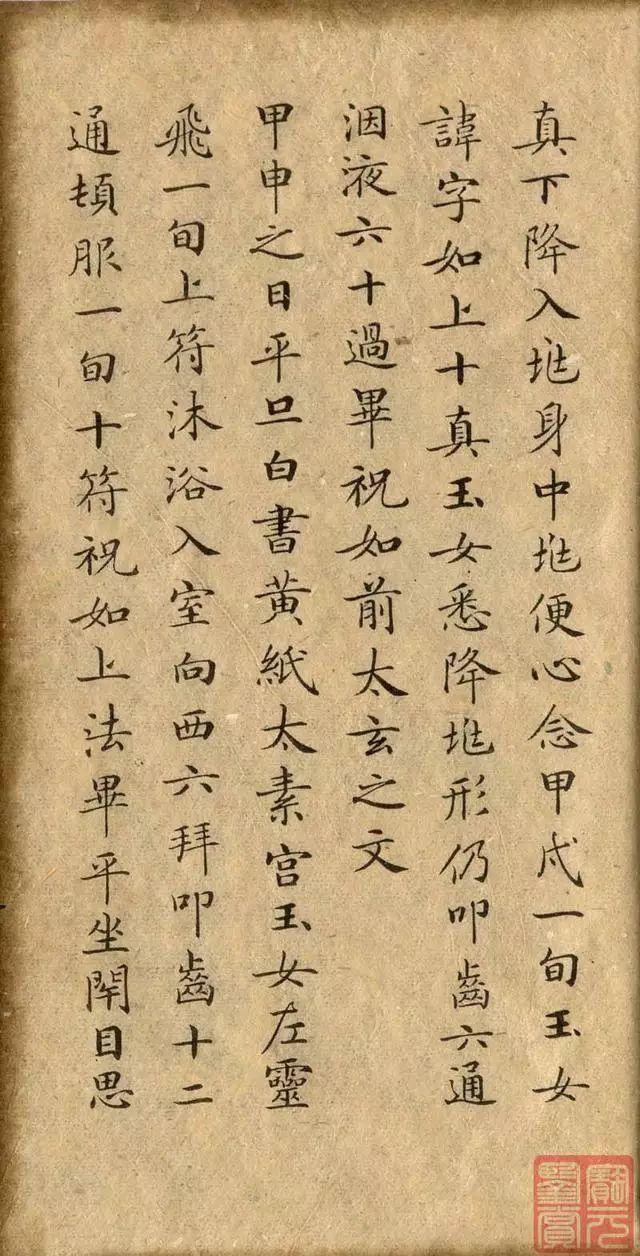 真下降入兆身中兆便心念甲戌一旬玉女
諱字如上十真玉女悉降兆形仍叩齒六通
咽液六十過畢祝如前太玄之文
甲申之日平旦白書黃紙太素宮玉女左靈
飛一旬上符沐浴入室向西六拜叩齒十二
通頓服一旬十符祝如上法畢平坐閇目思